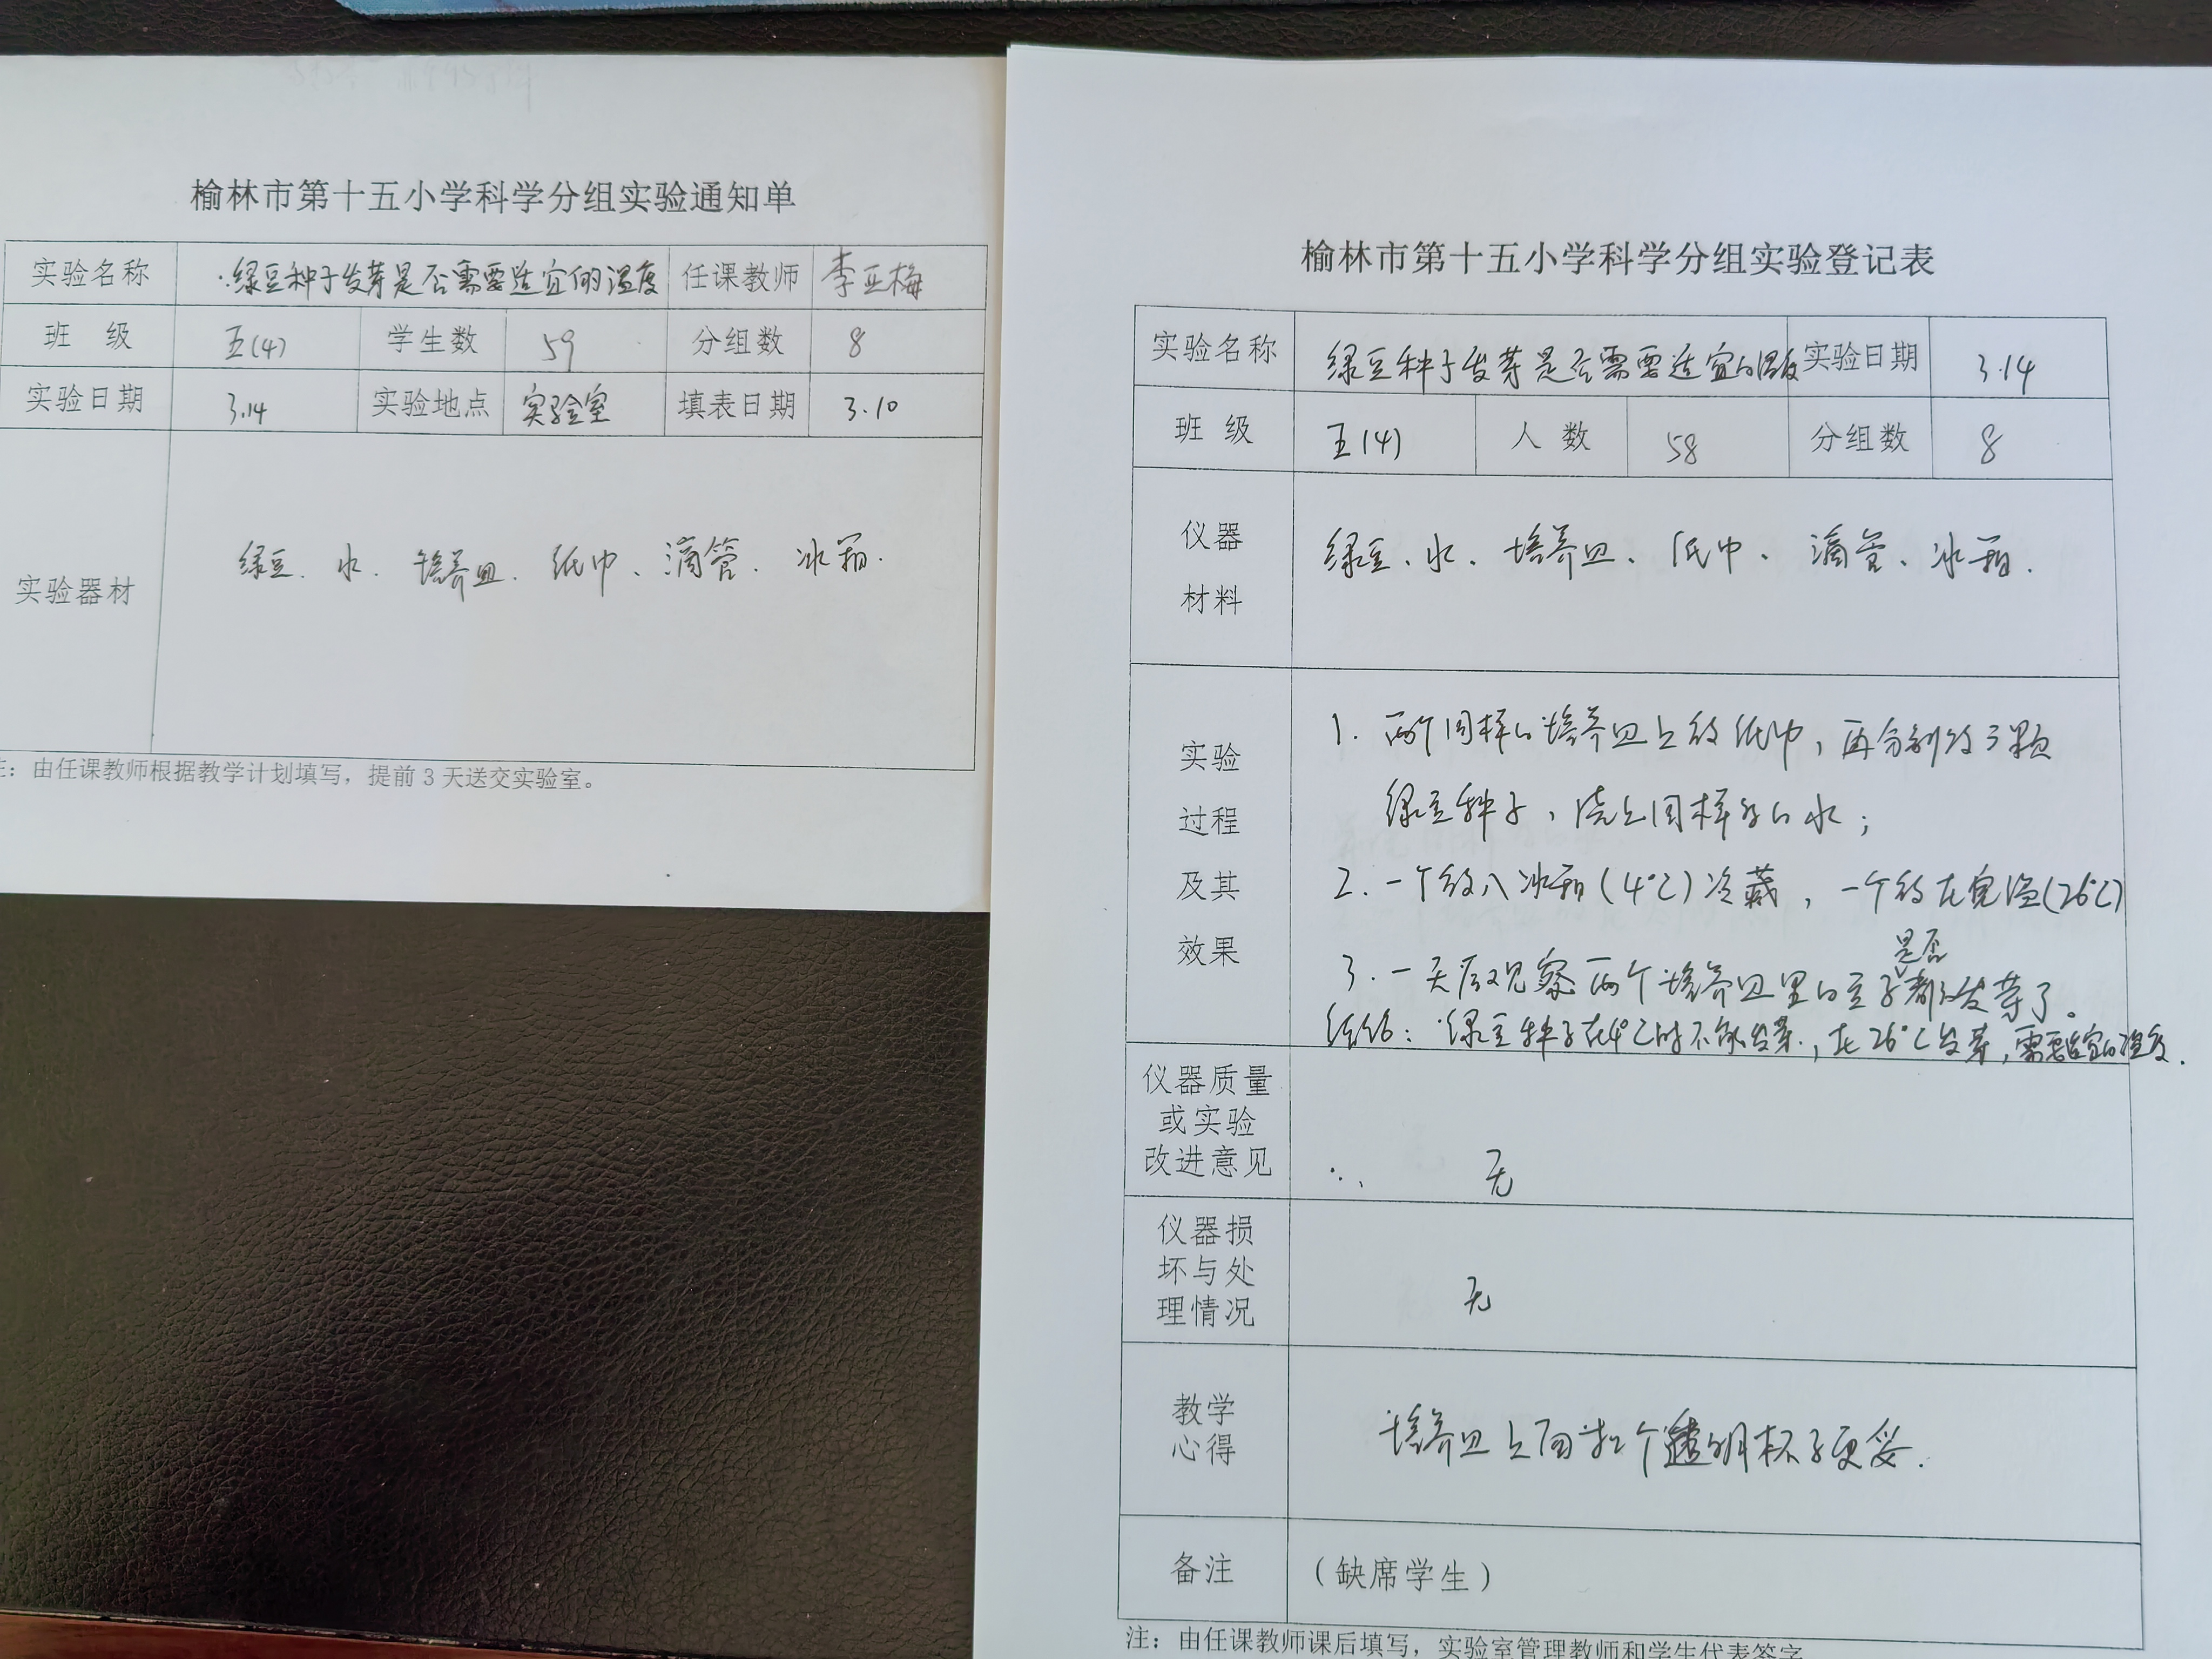 榆林市第十五小学科学分组实验通知单
实验名称 绿豆种子发芽是否需要适宜的温度 任课教师 李亚梅
班 级 五(4) 学生数 59 分组数 8
实验日期 3.14 实验地点 实验室 填表日期 3.10
实验器材 绿豆、水、培养皿、纸巾、滴管、冰箱.
注：由任课教师根据教学计划填写，提前 3 天送交实验室。
榆林市第十五小学科学分组实验登记表
实验名称 绿豆种子发芽是否需要适宜的温度 实验日期 3.14
班 级 五(4) 人 数 58 分组数 8
仪器
材料
绿豆、水、培养皿、纸巾、滴管、冰箱.
实验
过程
及其
效果
1. 两个同样的培养皿上放纸巾，再分别放3颗
绿豆种子，浇上同样多的水；
2. 一个放入冰箱(4℃)冷藏，一个放在室温(26℃)
3. 一天后观察两个培养皿里的豆子是否都发芽了。
结论：绿豆种子在4℃时不能发芽，在26℃发芽，需要适宜的温度.
仪器质量
或实验
改进意见
无
仪器损
坏与处
理情况
无
教学
心得
培养皿上面扣个透明杯子更妥.
备注 （缺席学生）
注：由任课教师课后填写，实验室管理教师和学生代表签字